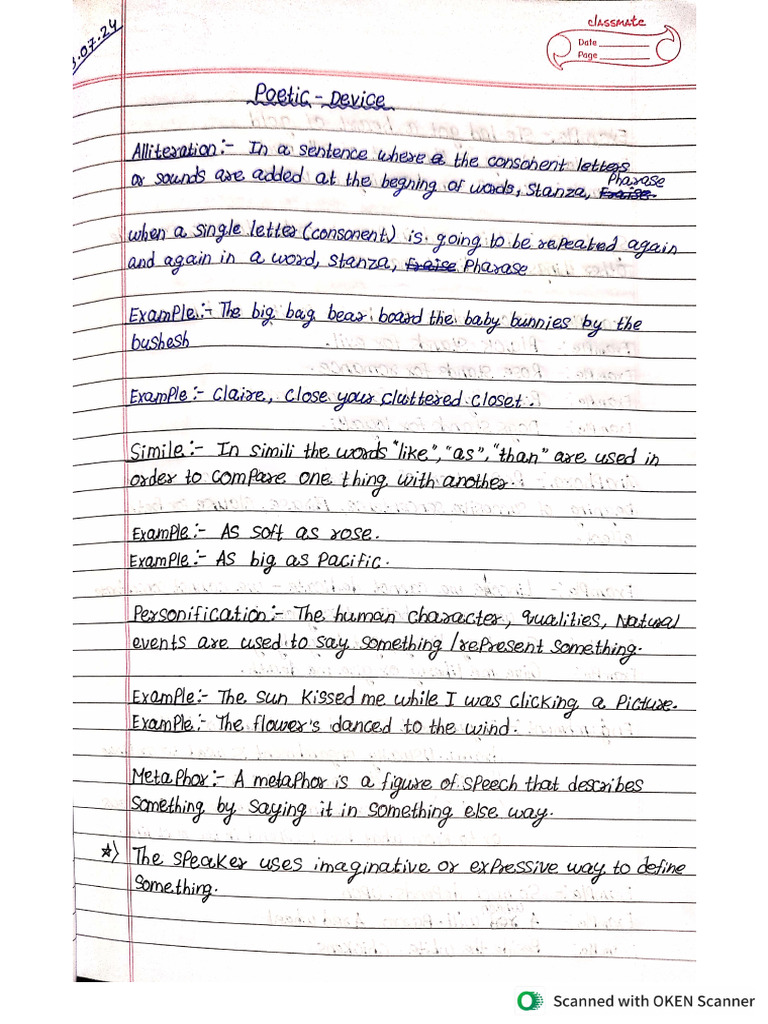 .07.24
classmate
Date
Page
Poetic - Device
Alliteration:- In a sentence where a the consonent letters
or sounds are added at the begning of words, stanza, Fraise Pharase
when a single letter (consonent) is going to be repeated again
and again in a word, stanza, Fraise Pharase
Example:- The big bag bear board the baby bunnies by the
bushesh
Example:- Claire, close your cluttered closet.
Simile:- In simili the words "like", "as", "than" are used in
order to compare one thing with another.
Example:- As soft as rose.
Example:- As big as pacific.
Personification:- The human character, qualities, Natural
events are used to say something /represent something.
Example:- The sun kissed me while I was clicking a picture.
Example:- The flower's danced to the wind.
Metaphor:- A metaphor is a figure of speech that describes
something by saying it in something else way.
☆) The speaker uses imaginative or expressive way to define
something.
Scanned with OKEN Scanner